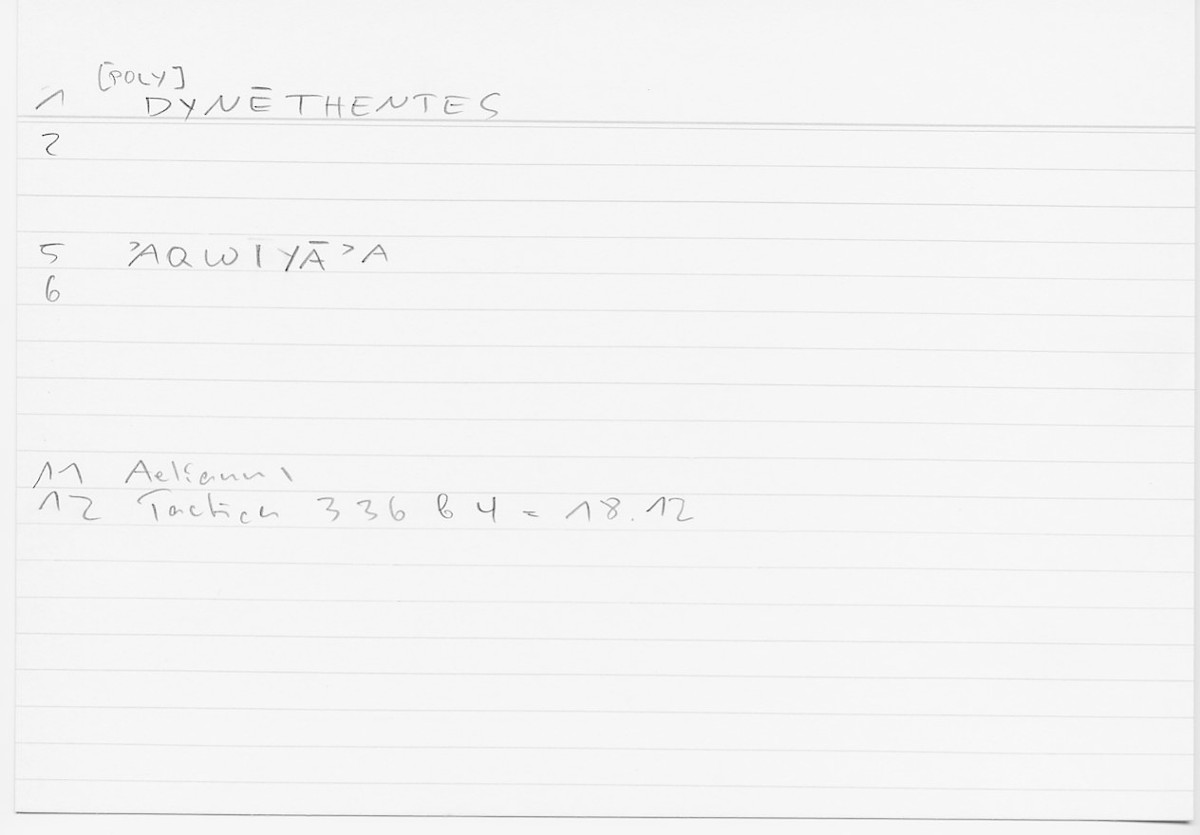 [POLY]
1 DYNĒTHENTES
2
5 ʾAQWIYĀʾA
6
11 Aelianus
12 Tactica 336 b 4 = 18.12